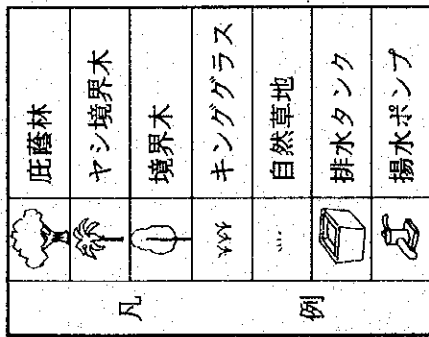 凡例
庇蔭林
ヤシ境界木
境界木
キンググラス
自然草地
排水タンク
揚水ポンプ